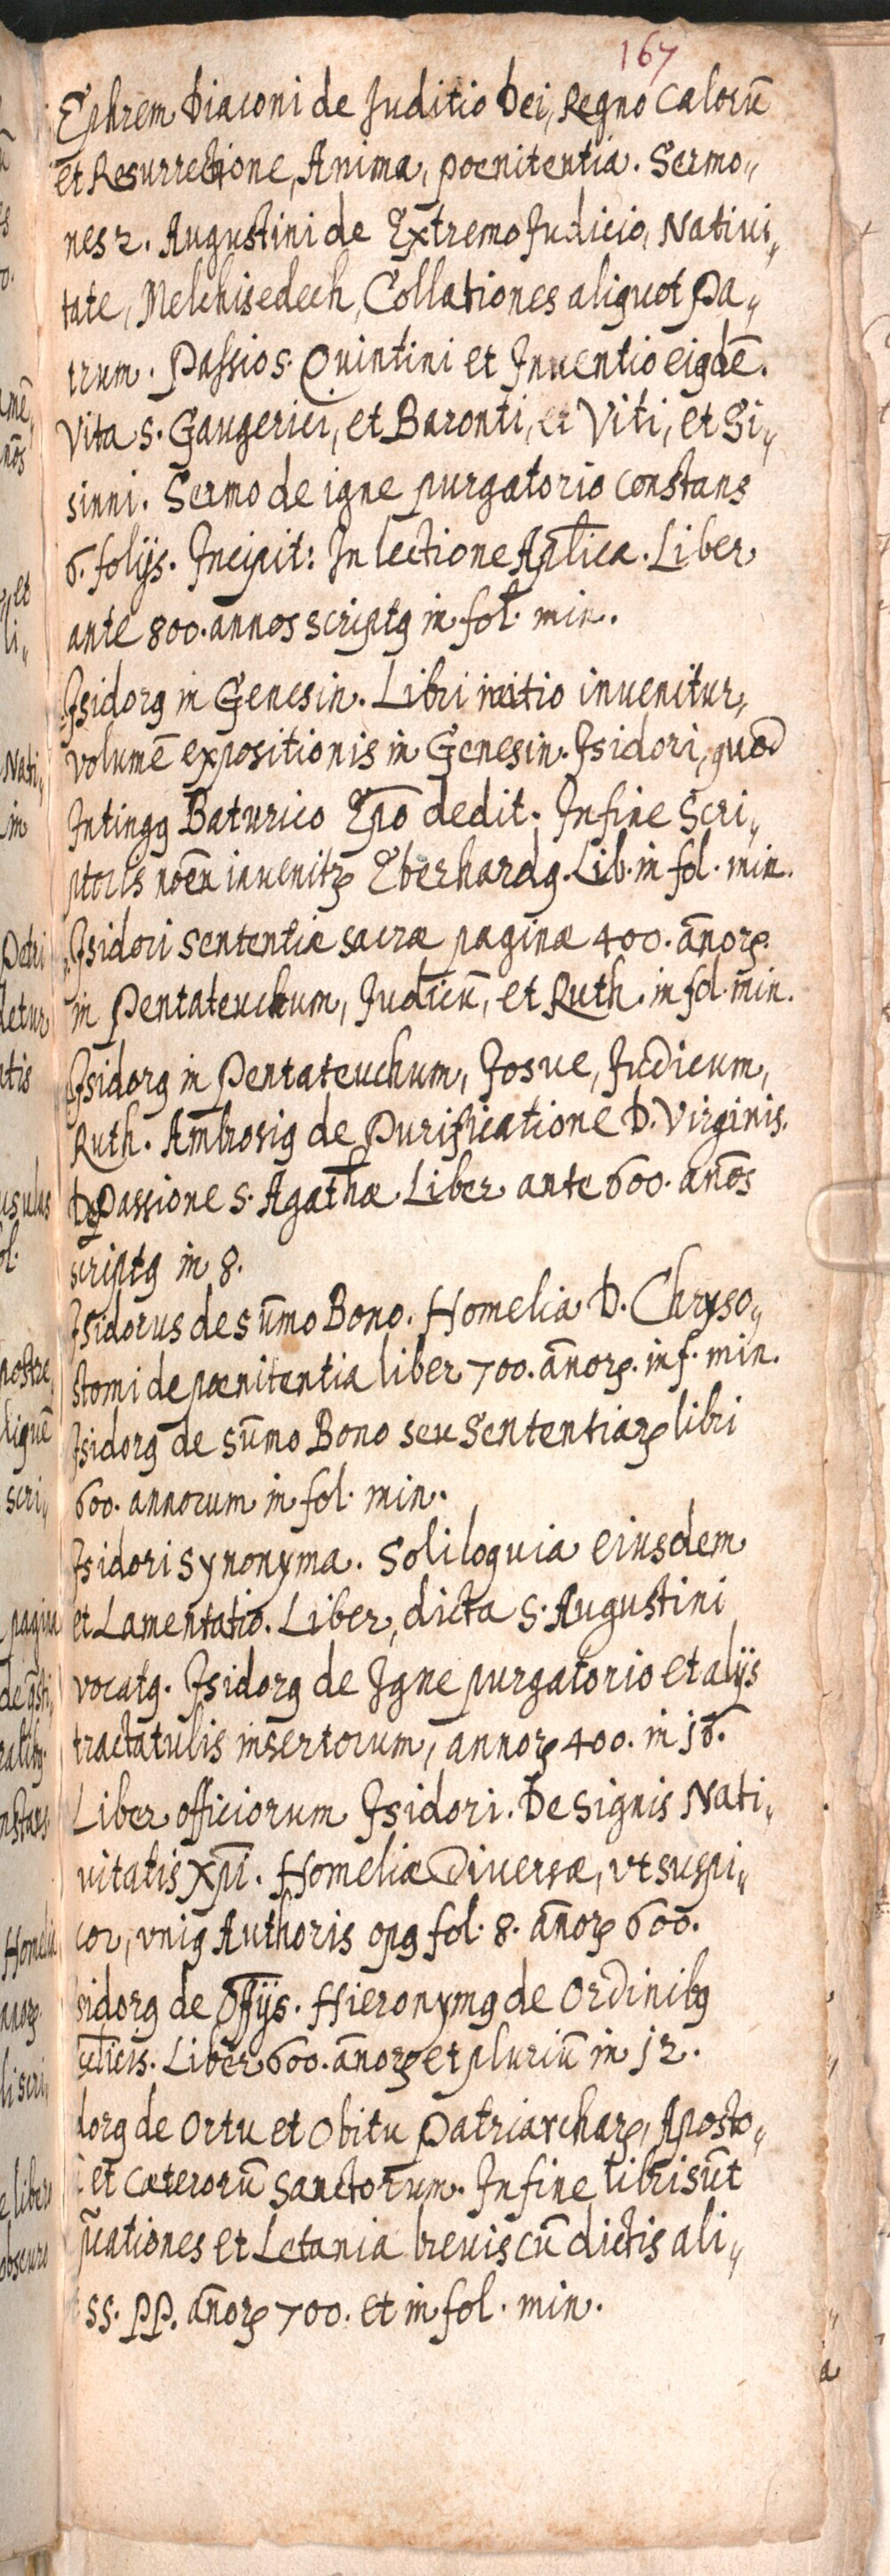 167
Ephrem Diaconi de Juditio Dei, Regno Calorū
et Resurrectione, Anima, poenitentia. Sermo„
nes 2. Augustini de Extremo Judicio, Nativi„
tate, Melchisedech, Collationes aliquot Pa„
trum. Passio S. Quintini et Inventio eiꝰdē.
Vita S. Gaugerici, et Baronti, et Viti, et Si„
sinni. Sermo de igne purgatorio constans
6. folijs. Incipit: In lectione Aplica. Liber
ante 800. annos scriptꝰ in fol. min.
Isidorꝰ in Genesin. Libri initio invenitur,
volumē expositionis in Genesin. Isidori, quod
Intingꝰ Baturico Epō dedit. In fine Scri„
ptoris noēn invenitꝛ Eberhardꝰ. Lib. in fol. min.
Isidori Sententiæ sacræ paginæ 400. ānorꝝ
in Pentateuchum, Judicū, et Ruth. in fol. min.
Isidorꝰ in Pentateuchum, Josue, Judicum,
Ruth. Ambrosiꝰ de Purificatione D. Virginis.
De Passione S. Agathæ Liber ante 600. anōs
scriptꝰ in 8.
Isidorus de sūmo Bono. Homelia D. Chryso„
stomi de pœnitentia liber 700. ānorꝝ. in f. min.
Isidorꝰ de Sūmo Bono seu Sententiarꝝ libri
600. annorum in fol. min.
Isidori Synonyma. Soliloquia eiusdem
et Lamentatio. Liber, dicta S. Augustini
vocatꝰ. Isidorꝰ de Igne purgatorio et alijs
tractatulis insertorum, annorꝝ 400. in 16.
Liber officiorum Isidori. De Signis Nati„
vitatis Xpi. Homeliæ Diversæ, vt suspi„
cor, vniꝰ Authoris opꝰ fol. 8. ānorꝝ 600.
sidorꝰ de Offijs. Hieronymꝰ de Ordinibꝰ
Liber 600. ānorꝝ et pluriū in 12.
dorꝰ de Ortu et Obitu Patriarcharꝝ, Aposto„
et Cæterorū Sanctorum. In fine libri sūt
et Letania brevis cū dictis ali„
SS. PP. ānorꝝ 700. et in fol. min.